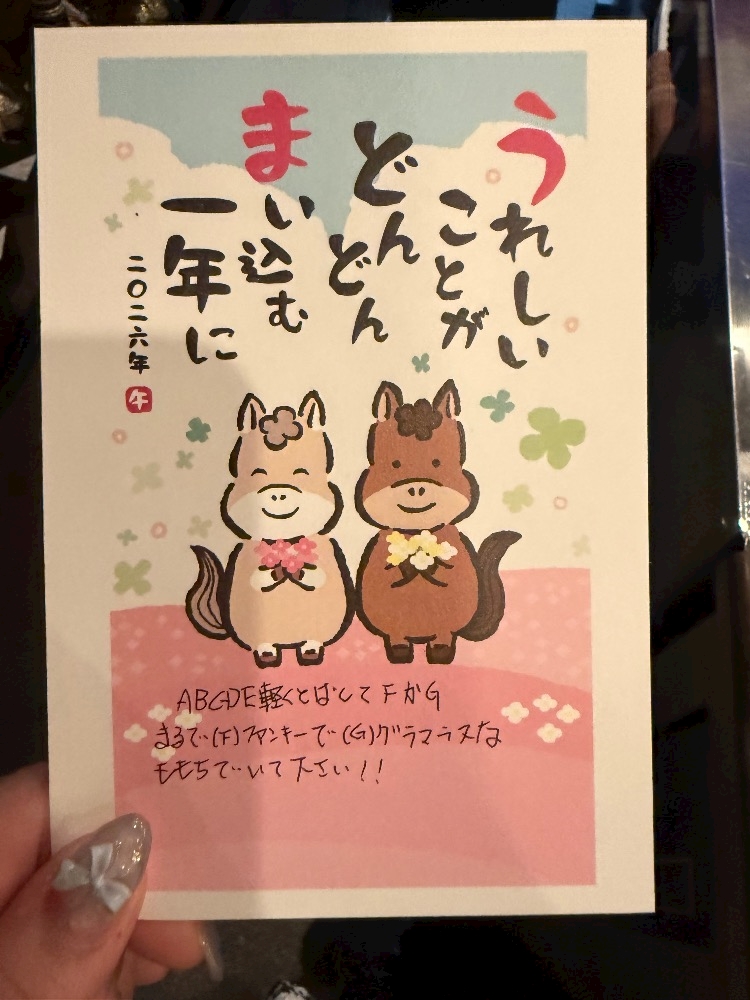 うれしい
ことが
どんどん
まい込む
一年に
二〇二六年
午
ABCDE軽くとばしてFかG
まるで(F)ファンキーで(G)グラマラスな
ももちでいて下さい!!